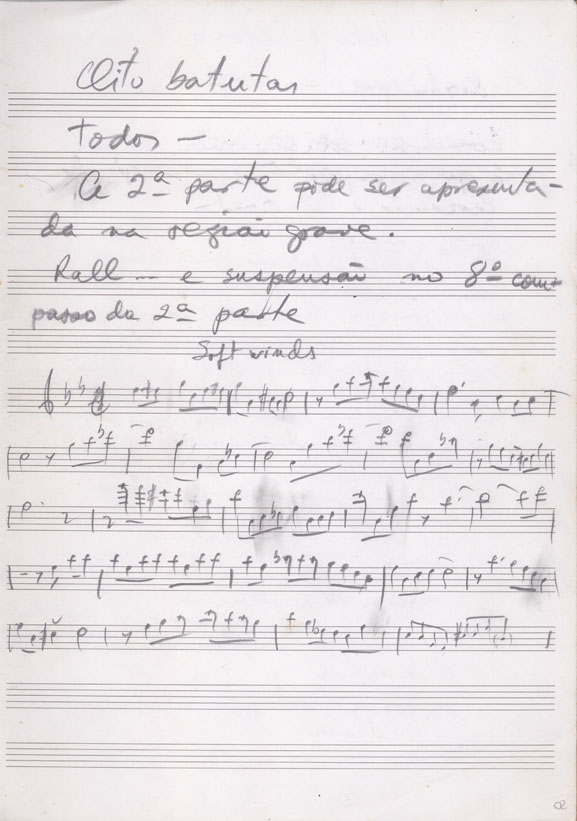 Oito batutas
Todos —
A 2ª parte pode ser apresenta-
da na região grave.
Rall... e suspensão no 8º com-
passo da 2ª parte
Soft winds
02